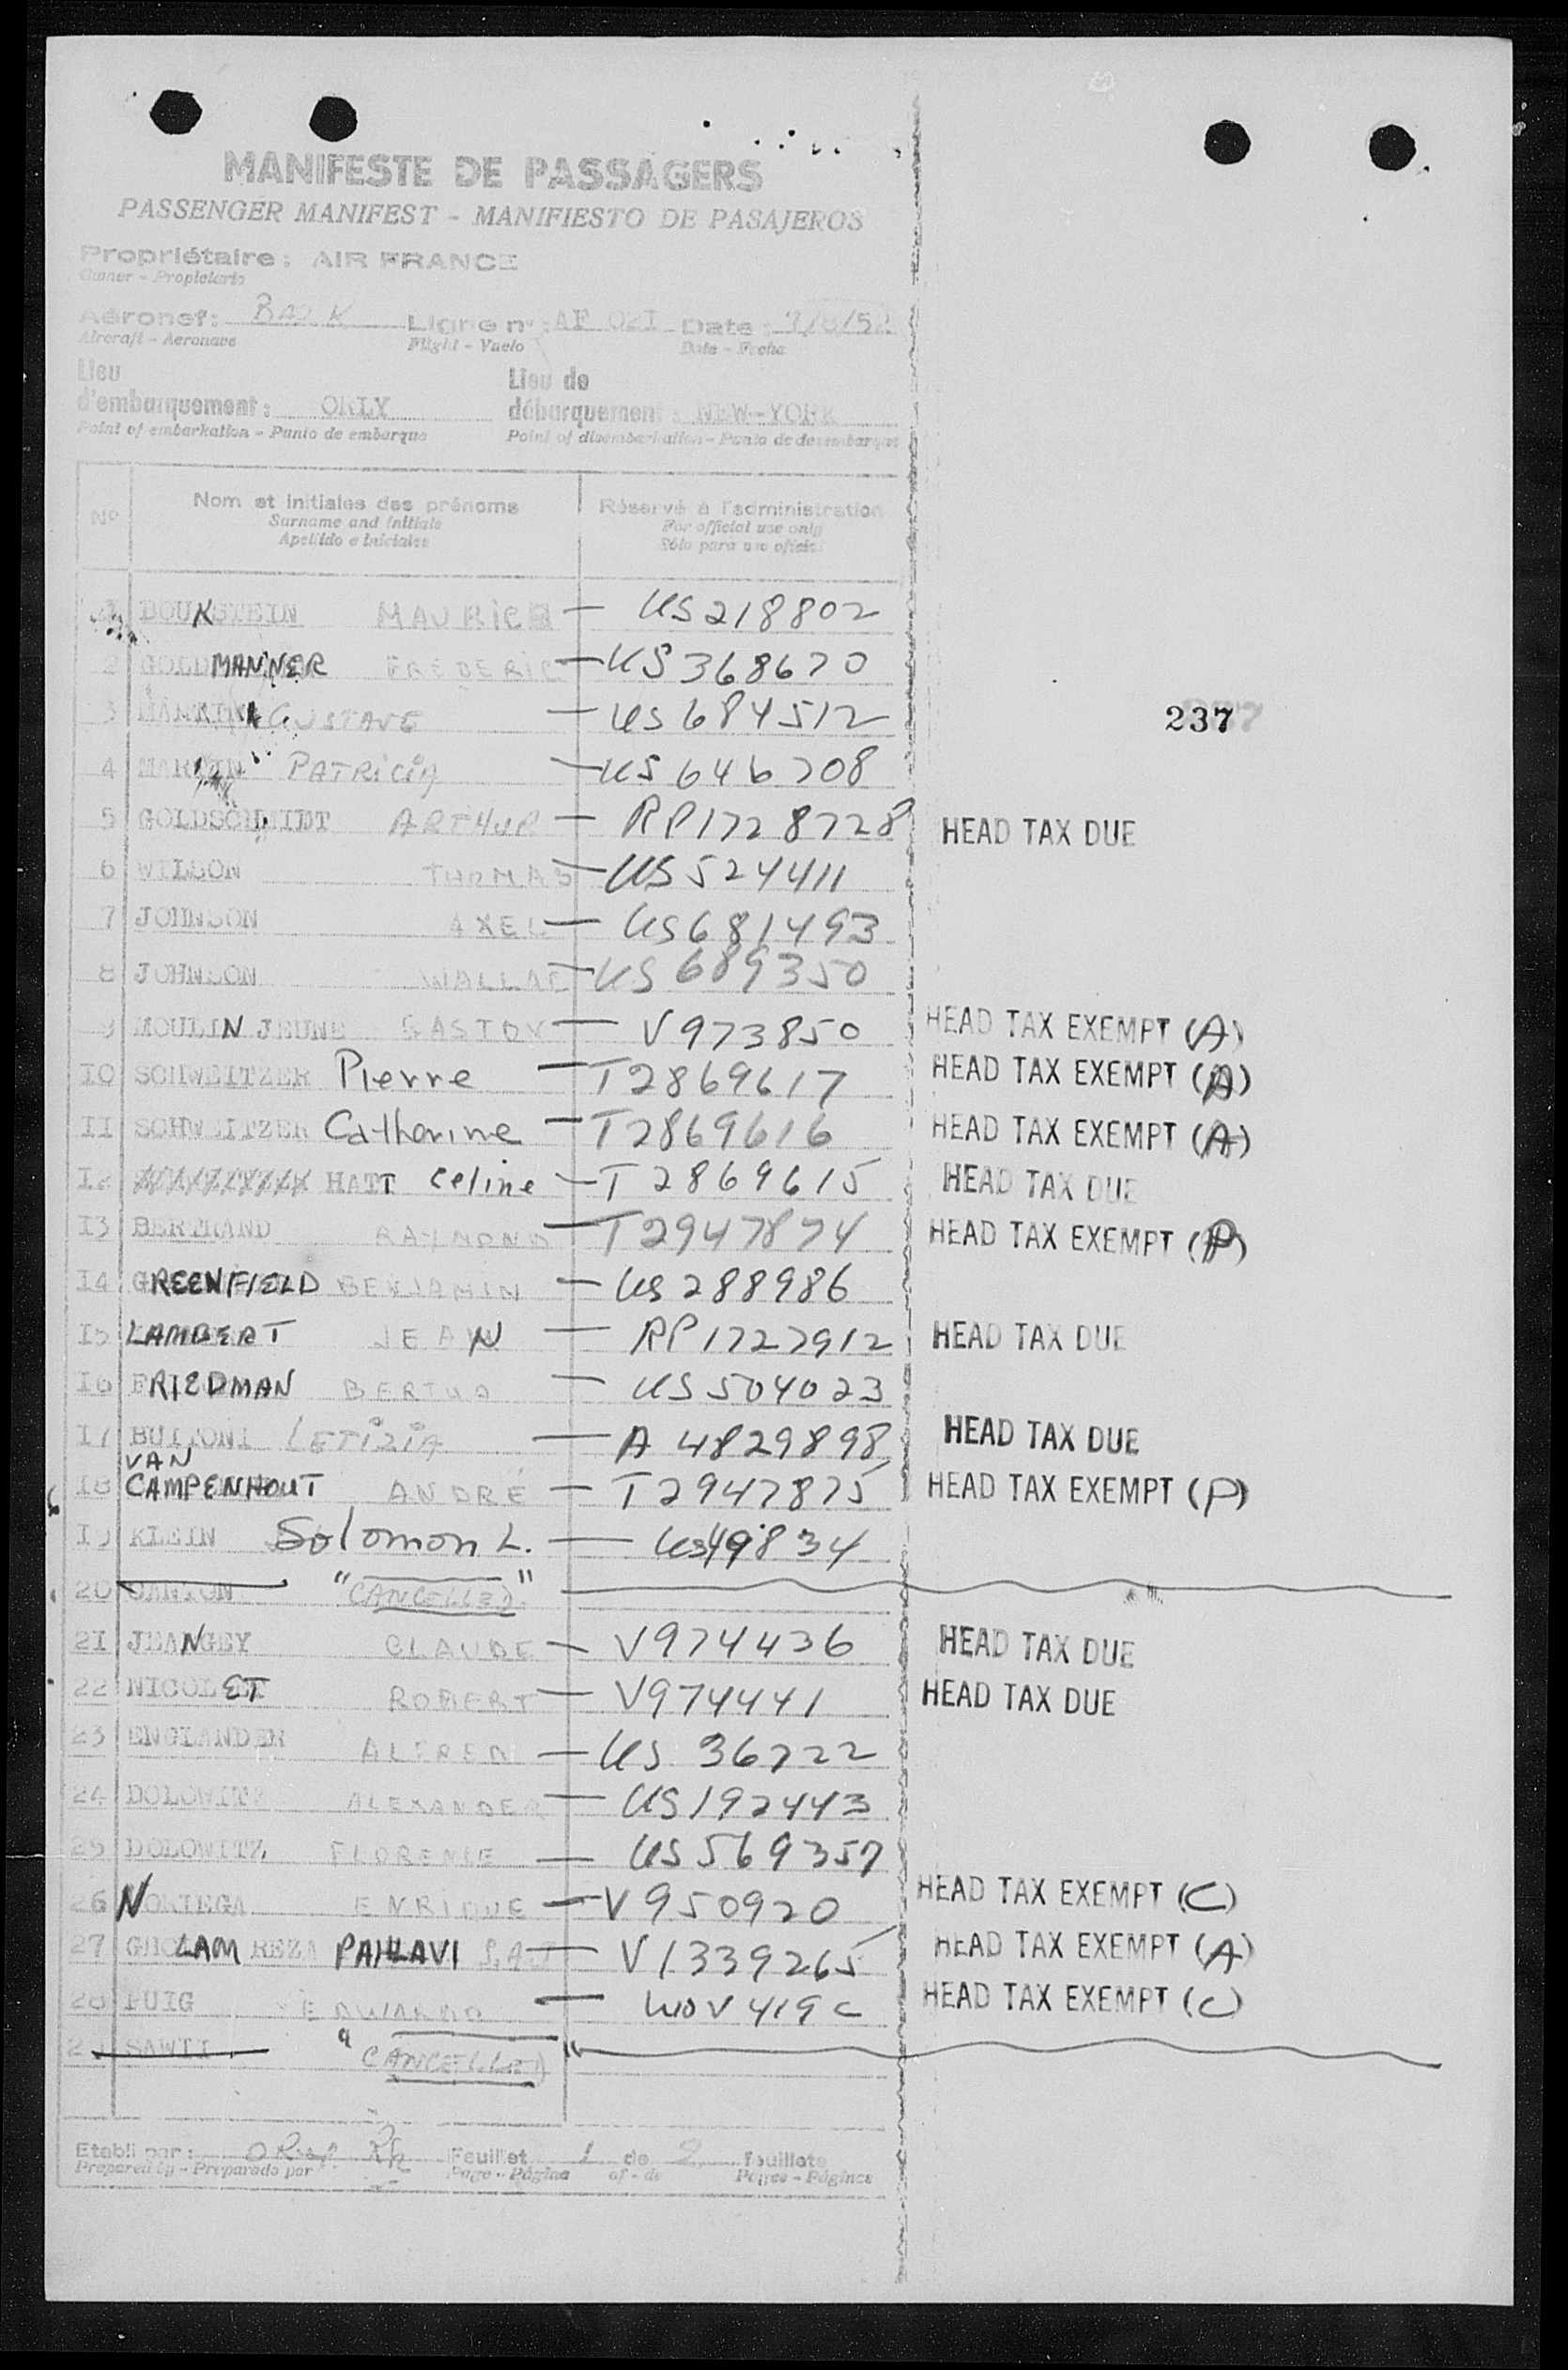 MANIFESTE DE PASSAGERS
PASSENGER MANIFEST - MANIFIESTO DE PASAJEROS
Propriétaire : AIR FRANCE
Owner - Propietario
Aéronef : Ligne n° : AF 021 Date : 7/8/52
Aircraft - Aeronave Flight - Vuelo Date - Fecha
Lieu Lieu de
d'embarquement : ORLY débarquement : NEW-YORK
Point of embarkation - Punto de embarque Point of disembarkation - Punto de desembarque
N° Nom et initiales des prénoms Réservé à l'administration
Surname and initials For official use only
Apellido e iniciales Sólo para uso oficial
1 BOUKSTEIN MAURICE — US218802
2 GOLDMANNER FREDERIC — US368670
237
3 GUSTAVE — US684512
4 MARTIN PATRICIA — US646708
5 GOLDSCHMIDT ARTHUR — RP1728728 HEAD TAX DUE
6 WILSON THOMAS — US524411
7 JOHNSON AXEL — US681493
8 JOHNSON WALLACE — US689350
9 MOULIN JEUNE GASTON — V973850 HEAD TAX EXEMPT (A)
10 SCHWEITZER Pierre — T2869617 HEAD TAX EXEMPT (A)
11 SCHWEITZER Catherine — T2869616 HEAD TAX EXEMPT (A)
12 HATT Celine — T2869615 HEAD TAX DUE
13 BERTRAND RAYMOND — T2947874 HEAD TAX EXEMPT (P)
14 GREENFIELD BENJAMIN — US288986
15 LAMBERT JEAN — RP1727912 HEAD TAX DUE
16 FRIEDMAN BERTHA — US504023
17 BUITONI LETIZIA — A 4829898 HEAD TAX DUE
VAN
18 CAMPENHOUT ANDRÉ — T2947875 HEAD TAX EXEMPT (P)
19 KLEIN Solomon L. — US49834
20 SANTON "CANCELLED"
21 JEANGEY CLAUDE — V974436 HEAD TAX DUE
22 NICOLET ROBERT — V974441 HEAD TAX DUE
23 ENGLANDER ALFRED — US 36722
24 DOLOWITZ ALEXANDER — US192443
25 DOLOWITZ FLORENCE — US569357
26 NORIEGA ENRIQUE — V950920 HEAD TAX EXEMPT (C)
27 GHOLAM REZA PAHLAVI — V1339265 HEAD TAX EXEMPT (A)
28 PUIG EDWARDO — WOV419C HEAD TAX EXEMPT (C)
29 SAWTI "CANCELLED"
Etabli par : Feuillet 1 de 2 feuillets
Prepared by - Preparado por Page - Página of - de Pages - Páginas